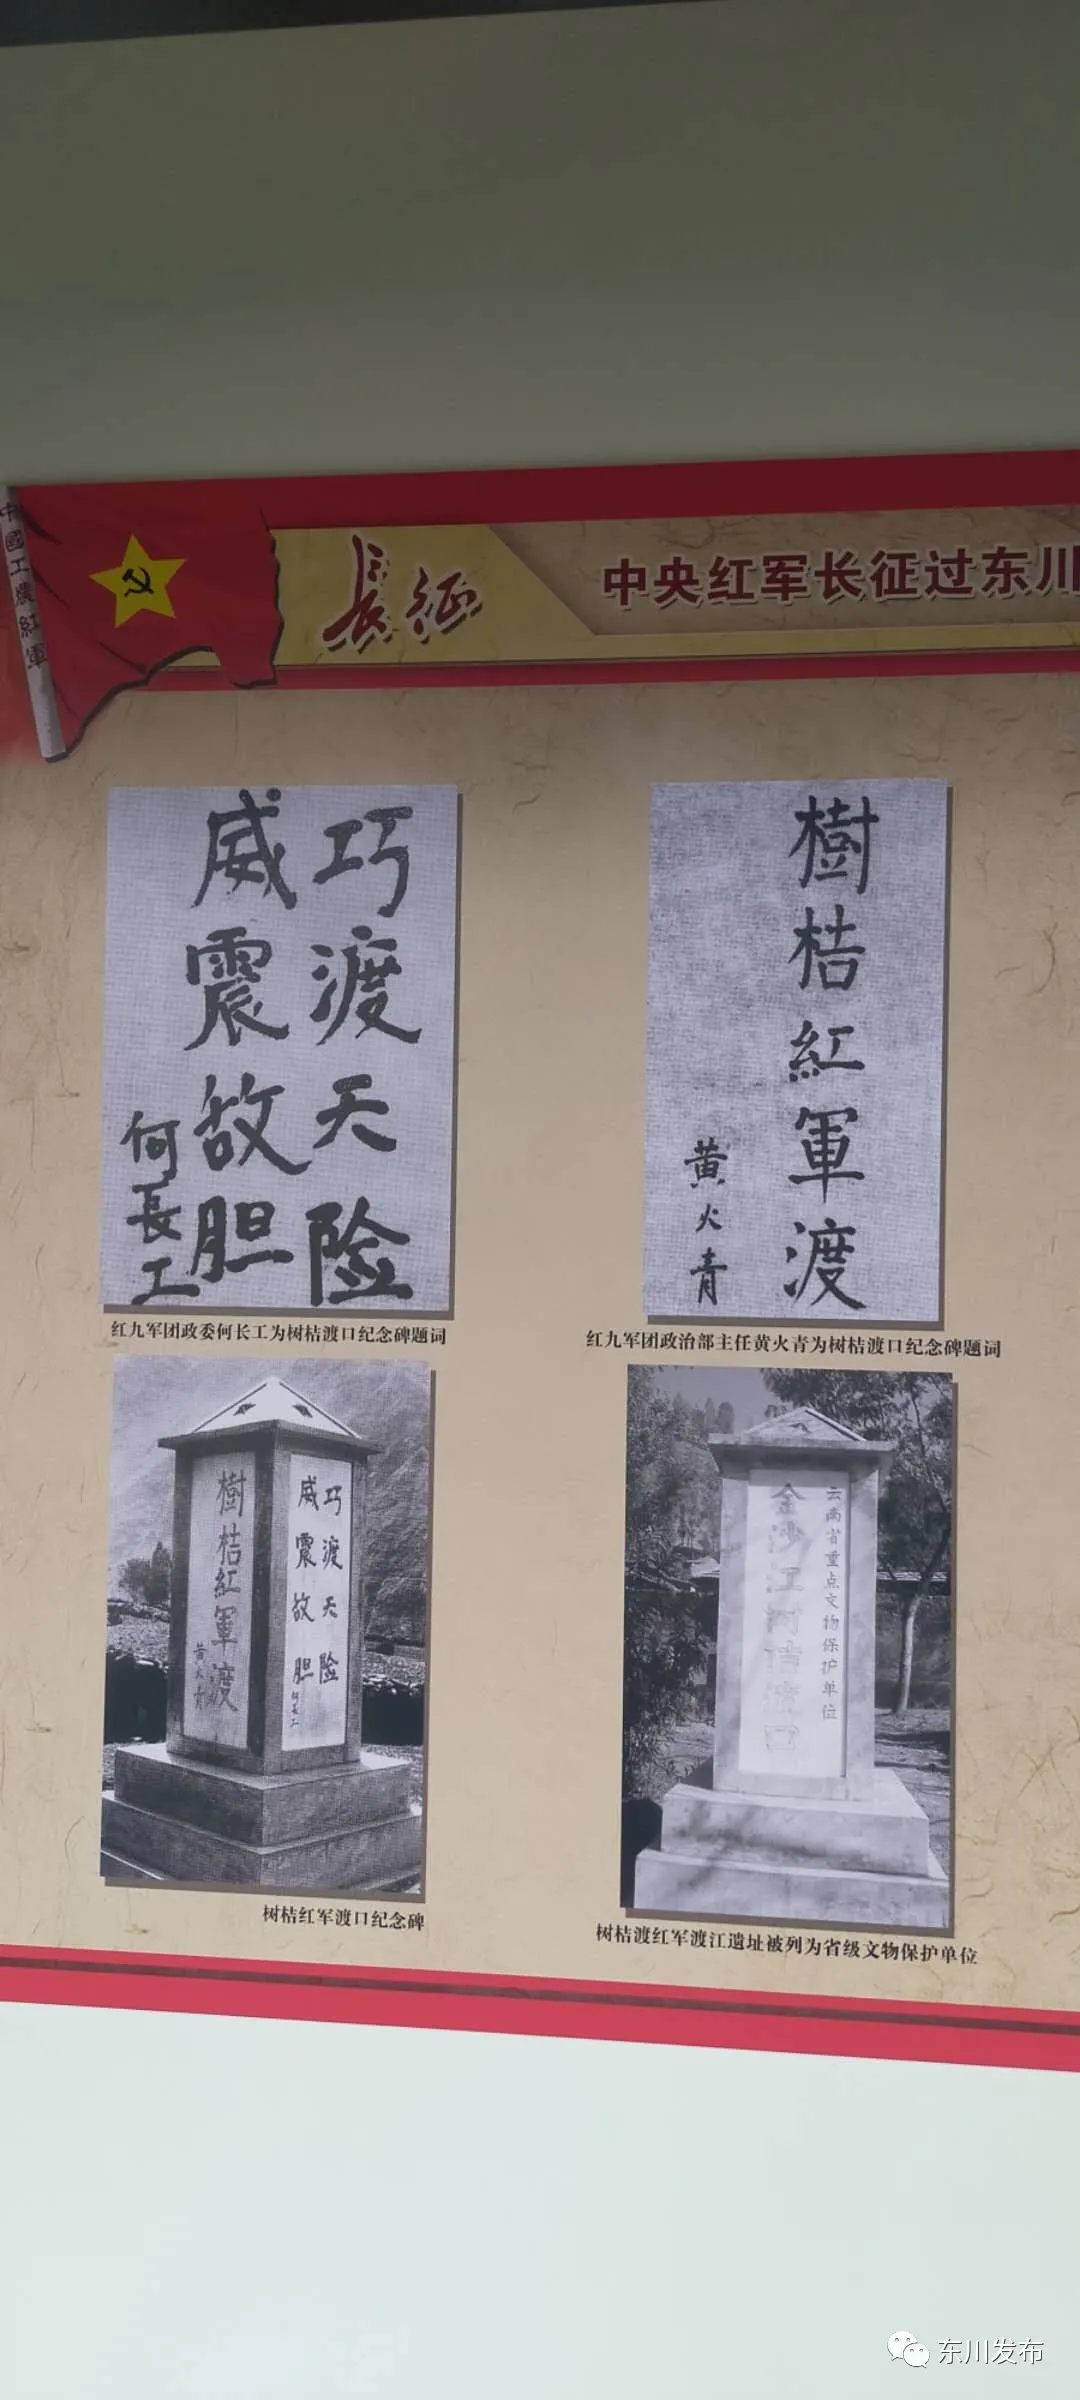 中國工農紅軍
長征
中央红军长征过东川
巧渡天险
威震敌胆
何長工
樹桔紅軍渡
黄火青
红九军团政委何长工为树桔渡口纪念碑题词
红九军团政治部主任黄火青为树桔渡口纪念碑题词
樹桔紅軍渡
黄火青
巧渡天险
威震敌胆
何長工
云南省重点文物保护单位
金沙江树桔渡口
树桔红军渡口纪念碑
树桔渡红军渡江遗址被列为省级文物保护单位
东川发布